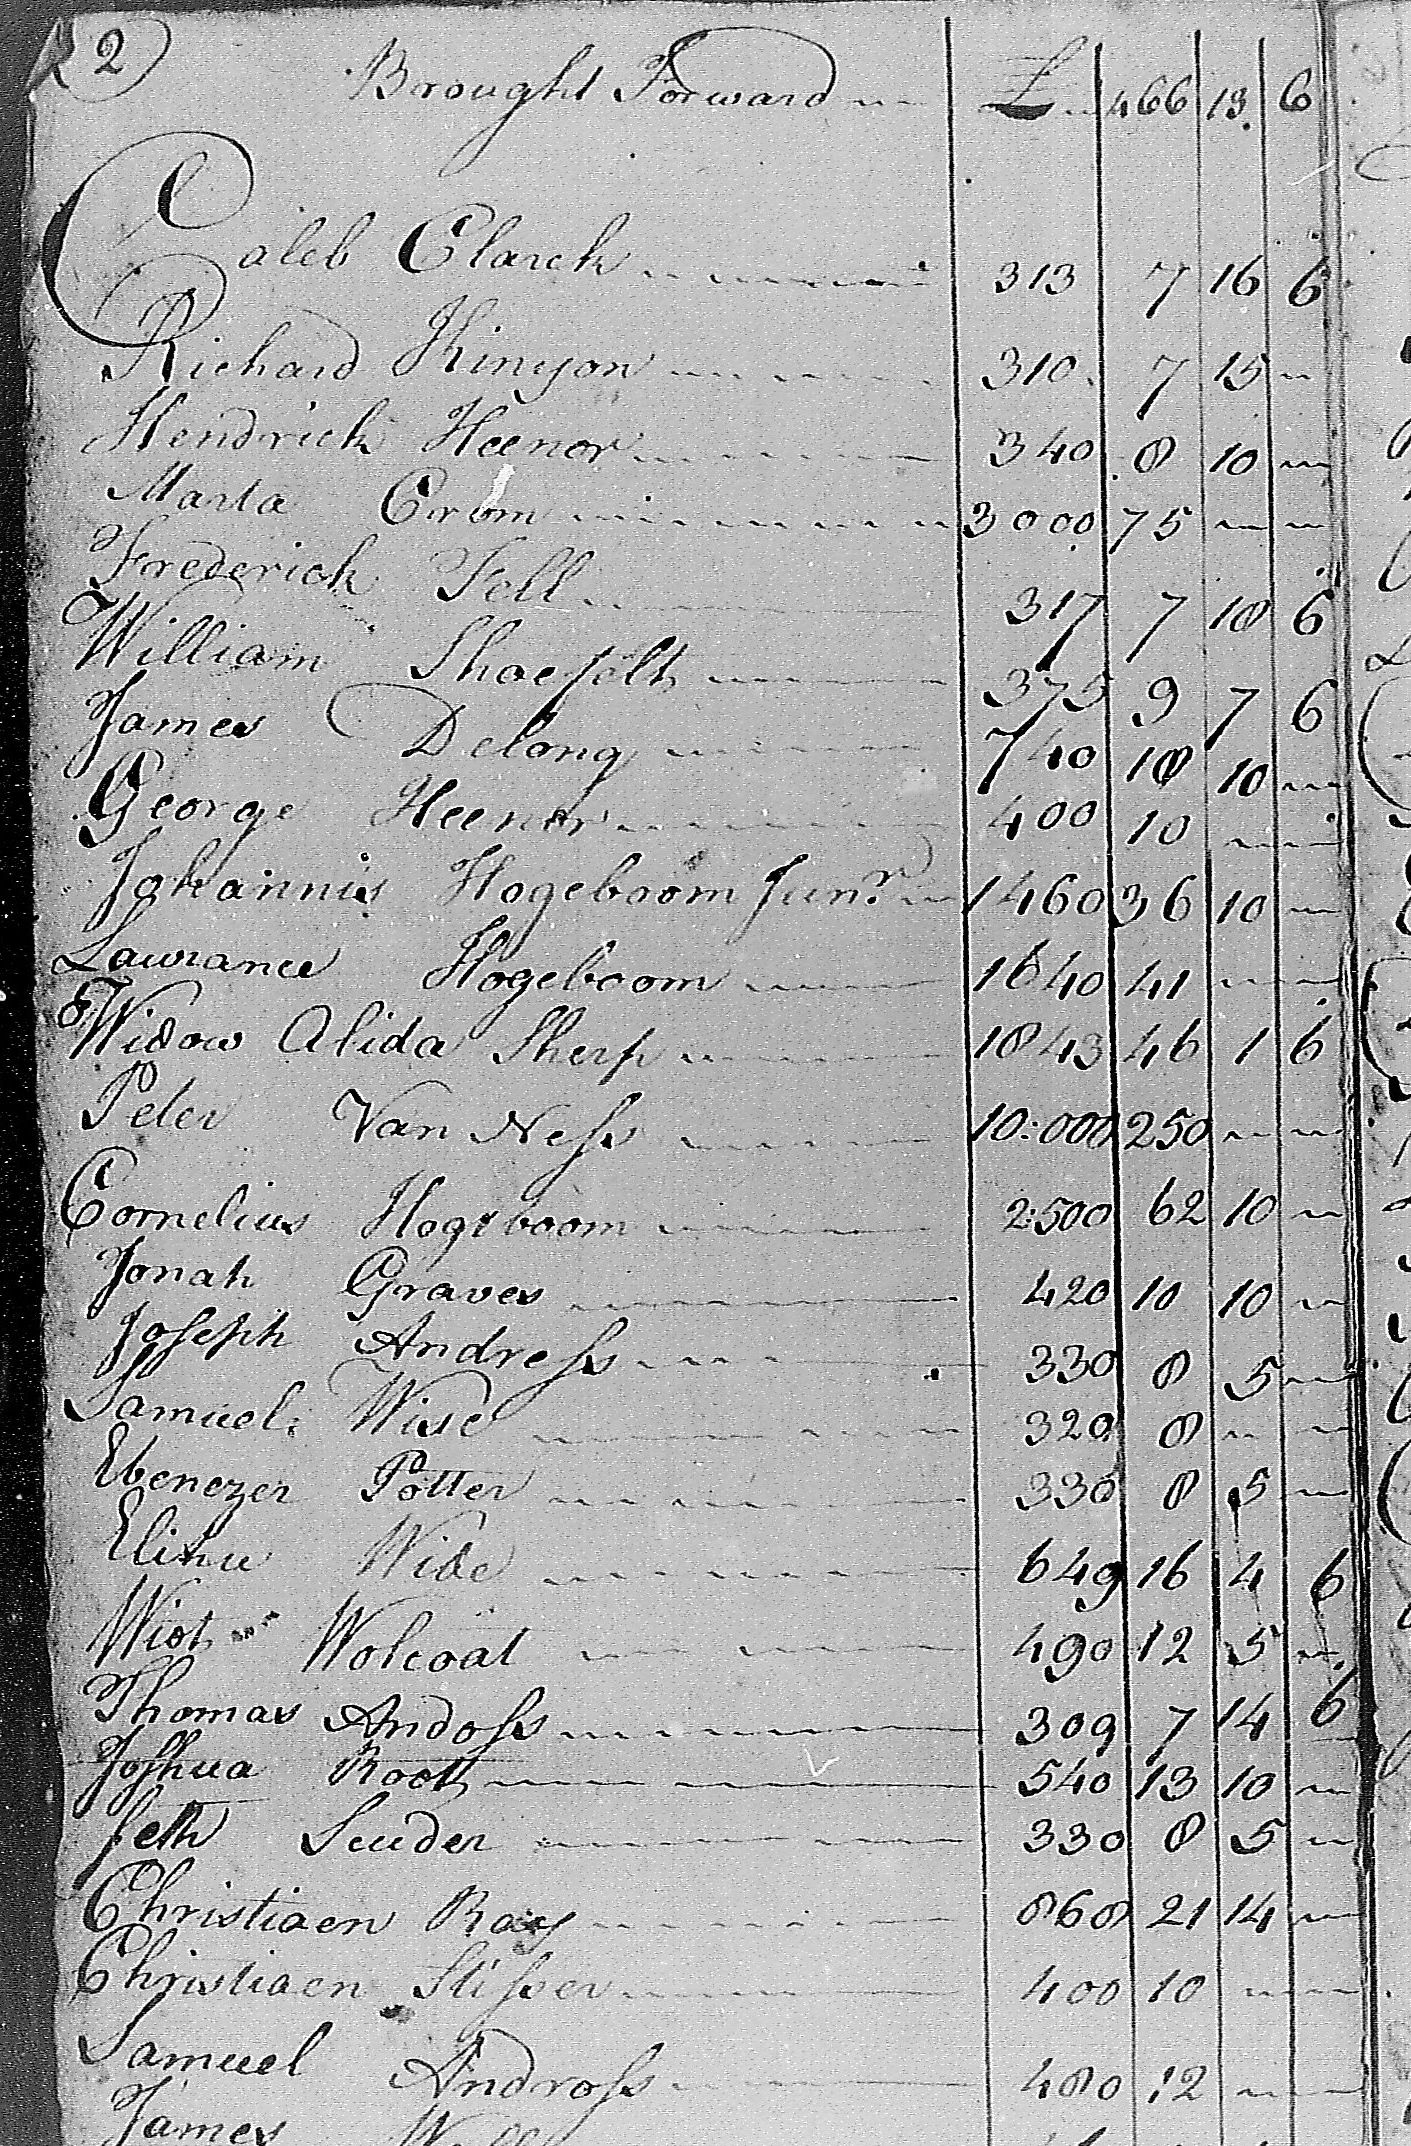 2
Brought Forward £ 466 13 6
Caleb Clarck 313 7 16 6
Richard Kinyon 310 7 15
Hendrick Heenor 340 8 10
Marta Crom 3000 75
Frederick Fell 317 7 18 6
William Shoefelt 375 9 7 6
James Delong 740 18 10
George Heener 400 10
Johannis Hogeboom Junr 1460 36 10
Lawrance Hogeboom 1640 41
Widow Alida Sherp 1843 46 1 6
Peter Van Ness 10:000 250
Cornelius Hogeboom 2:500 62 10
Jonah Graves 420 10 10
Joseph Andress 330 8 5
Samuel Wise 320 8
Ebenezer Potter 330 8 5
Elihu Wide 649 16 4 6
Wiot Wolcoat 490 12 5
Thomas Andoss 309 7 14 6
Joshua Root 540 13 10
Seth Scuder 330 8 5
Christiaen Ray 868 21 14
Christiaen Stisser 400 10
Samuel Andross 480 12
James